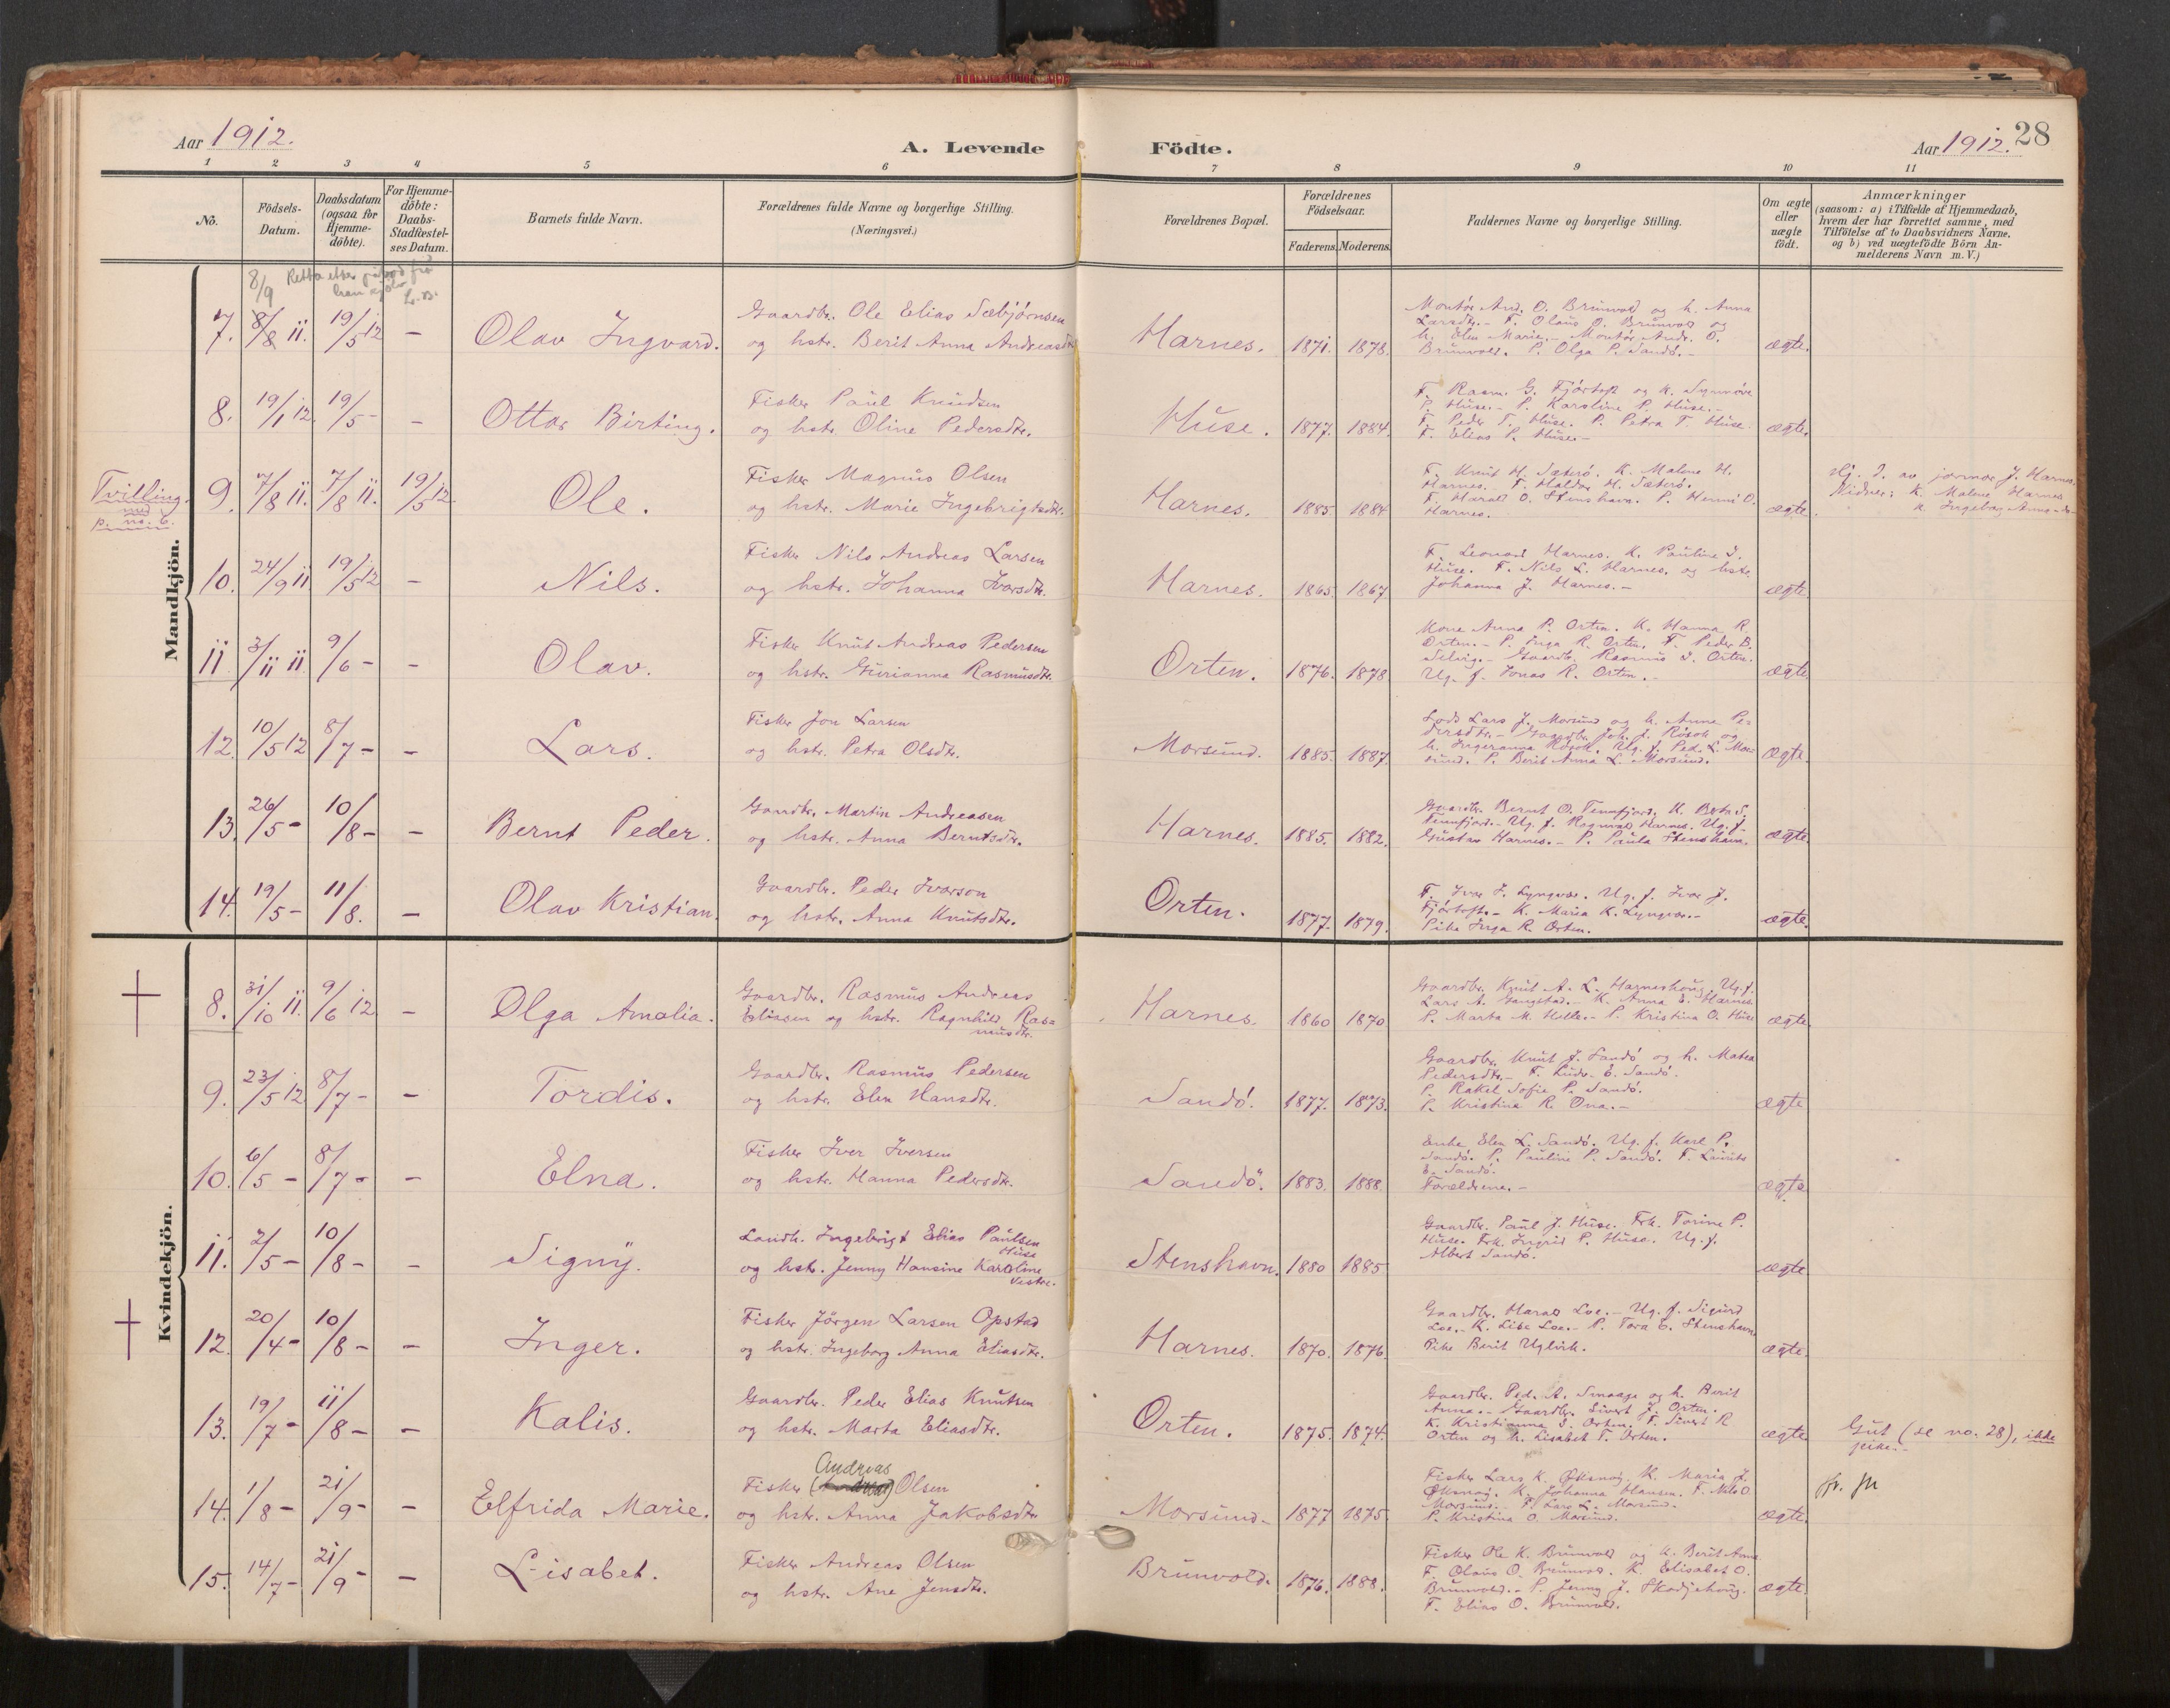 Aar 1912.
A. Levende Födte.
Aar 1912. 28
1 2 3 4 5 6 7 8 9 10 11
No.
Födsels-Datum.
Daabsdatum (ogsaa for Hjemme-döbte).
For Hjemme-döbte: Daabs-Stadfæstel-ses Datum.
Barnets fulde Navn.
Forældrenes fulde Navne og borgerlige Stilling.
(Næringsvei.)
Forældrenes Bopæl.
Forældrenes Födselsaar.
Faderens. Moderens.
Faddernes Navne og borgerlige Stilling.
Om ægte eller uægte födt.
Anmærkninger
(saasom: a) i Tilfælde af Hjemmedaab,
hvem der har forrettet samme, med
Tilföielse af to Daabsvidners Navne.
og b) ved uægtefödte Börn An-
melderens Navn m. V.)
Mandkjön.
8/9 Retta etter påbod frå
7. 8/8 11. 19/5 12 – Olav Ingvard.
Gaardbr. Ole Elias Sæbjörnsen
og hstr. Berit Anna Andreasdtr.
Harnes. 1871. 1878.
Montör And. O. Brunvold og h. Anna
Larsdtr. – F. Olaus O. Brunvold og
h. Elen Marie. – Montör Andr. O.
Brunvold. P. Olga P. Sandö. –
ægte.
8. 19/1 12 19/5 – – Ottar Birting.
Fisker Paul Knudsen
og hstr. Oline Pedersdtr.
Huse. 1877. 1884.
F. Rasm. G. Fjörtoft og K. Synnöve
P. Huse. – P. Karoline P. Huse. –
F. Peder T. Huse. P. Petra T. Huse.
F. Elias P. Huse. –
ægte.
Tvilling
med
p. no. 6.
9. 7/8 11. 7/8 11. 19/5 12. Ole.
Fisker Magnus Olsen
og hstr. Marie Ingebrigtsdtr.
Harnes. 1885. 1884.
F. Knut H. Sæterö. K. Malene H.
Harnes. F. Haldor H. Sæterö.
F. Harald O. Stenshavn. P. Hermi O.
Harnes.
ægte.
Hj. D. av jormor J. Harnes.
Vidner: K. Malene Harnes
K. Ingeborg Anna –do–
10. 24/9 11 19/5 12 – Nils.
Fisker Nils Andreas Larsen
og hstr. Johanna Ivarsdtr.
Harnes. 1865. 1867
F. Leonard Harnes. K. Pauline I.
Huse. F. Nils L. Harnes. og hstr.
Johanna J. Harnes. –
ægte.
11 3/11 11 9/6 – – Olav.
Fisker Knut Andreas Pedersen
og hstr. Gurianna Rasmusdtr.
Orten. 1876. 1878
Kone Anna P. Orten. K. Hanna R.
Orten. – P. Inga R. Orten. F. Peder B.
Gaardbr. Rasmus I. Orten.
Ug. f. Jonas R. Orten. –
ægte
12. 10/5 12 8/7 – – Lars.
Fisker Jon Larsen
og hstr. Petra Olsdtr.
Morsund. 1885. 1887.
Lods Lars J. Morsund og h. Anna Pe-
dersdtr. – Gaardbr. Joh. J. Rösok og
h. Ingeranna Rösok. Ug. f. Ped. L. Mor-
sund. P. Berit Anna L. Morsund.
ægte.
13. 26/5 – 10/8 – – Bernt Peder.
Gaardbr. Martin Andreasen
og hstr. Anna Berntsdtr.
Harnes. 1885. 1882.
Gaardbr. Bernt O. Tennfjord. K. Berta S.
Tennfjord. – Ug. f. Ragnvald Harnes. Ug. f.
Gustav Harnes. – P. Paula Stenshavn.
ægte.
14. 19/5 – 11/8. – Olav Kristian.
Gaardbr. Peder Ivarson
og hstr. Anna Knutsdtr.
Orten. 1877. 1879.
F. Ivar I. Lyngvær. Ug. f. Ivar J.
Fjörtoft. – K. Maria K. Lyngvær. –
Pike Inga R. Orten.
ægte.
Kvindekjön.
8. 31/10 11. 9/6 12. – Olga Amalia.
Gaardbr. Rasmus Andreas
Eliasen og hstr. Ragnhild Ras-
musdtr.
Harnes. 1860 1870
Gaardbr. Knut A. L. Harneshoug. Ug. f.
Lars A. Gangstad. – K. Anna E. Harnes.
P. Marta M. Helle. – P. Kristina O. Huse
ægte.
9. 23/5 12 8/7 – – Tordis.
Gaardbr. Rasmus Pedersen
og hstr. Elen Hansdtr.
Sandö. 1877. 1873.
Gaardbr. Knut J. Sandö og h. Matea
Pedersdtr. – F. Ludv. E. Sandö.
P. Rakel Sofie P. Sandö.
P. Kristine R. Ona. –
ægte
10. 6/5 – 8/7 – – Elna.
Fisker Iver Iversen
og hstr. Hanna Pedersdtr.
Sandö. 1883. 1888.
Enke Elen L. Sandö. Ug. f. Karl P.
Sandö. P. Pauline P. Sandö. F. Laurits
E. Sandö.
Forældrene. –
ægte
11. 2/5 – 10/8 – – Signy.
Landh. Ingebrigt Elias Paulsen
Huse
og hstr. Jenny Hansine Karoline
Vestre.
Stenshavn. 1880 1885
Gaardbr. Paul J. Huse. Frk. Torine P.
Huse. Frk. Ingrid P. Huse. Ug. f.
Albert Sandö.
ægte
12. 20/4 – 10/8 – – Inger.
Fisker Jörgen Larsen Opstad
og hstr. Ingeborg Anna Eliasdtr.
Harnes. 1870. 1876.
Gaardbr. Harald Loe. – Ug. f. Sigurd
Loe. – K. Lise Loe. – P. Tora E. Stenshavn.
Pike Berit Uglvik.
ægte.
13. 19/7 – 11/8 – – Kalis.
Gaardbr. Peder Elias Knutsen
og hstr. Marta Eliasdtr.
Orten. 1875. 1874.
Gaardbr. Ped. A. Smaage og h. Berit
Anna. – Gaardbr. Sivert J. Orten.
K. Kristianna S. Orten. F. Sivert R.
Orten og h. Lisabet T. Orten.
ægte
Gut (se no. 28), ikke
pike. –
14. 1/8 – 21/9 – – Elfrida Marie.
Andreas
Fisker Olsen
og hstr. Anna Jakobsdtr.
Morsund. 1877 1875
Fisker Lars K. Öksnöy. K. Maria J.
Öksnöy. K. Johanna Hansen. F. Nils O.
Morsund. – F. Lars L. Morsund.
P. Kristina O. Morsund.
ægte.
15. 14/7 – 21/9 – – Lisabet.
Fisker Andreas Olsen
og hstr. Ane Jensdtr.
Brunvold. 1876. 1888.
Fisker Ole K. Brunvold og h. Berit Anna.
F. Olaus O. Brunvold. K. Elisabet O.
Brunvold. – P. Jenny J. Skodjehoug.
F. Elias O. Brunvold.
ægte.